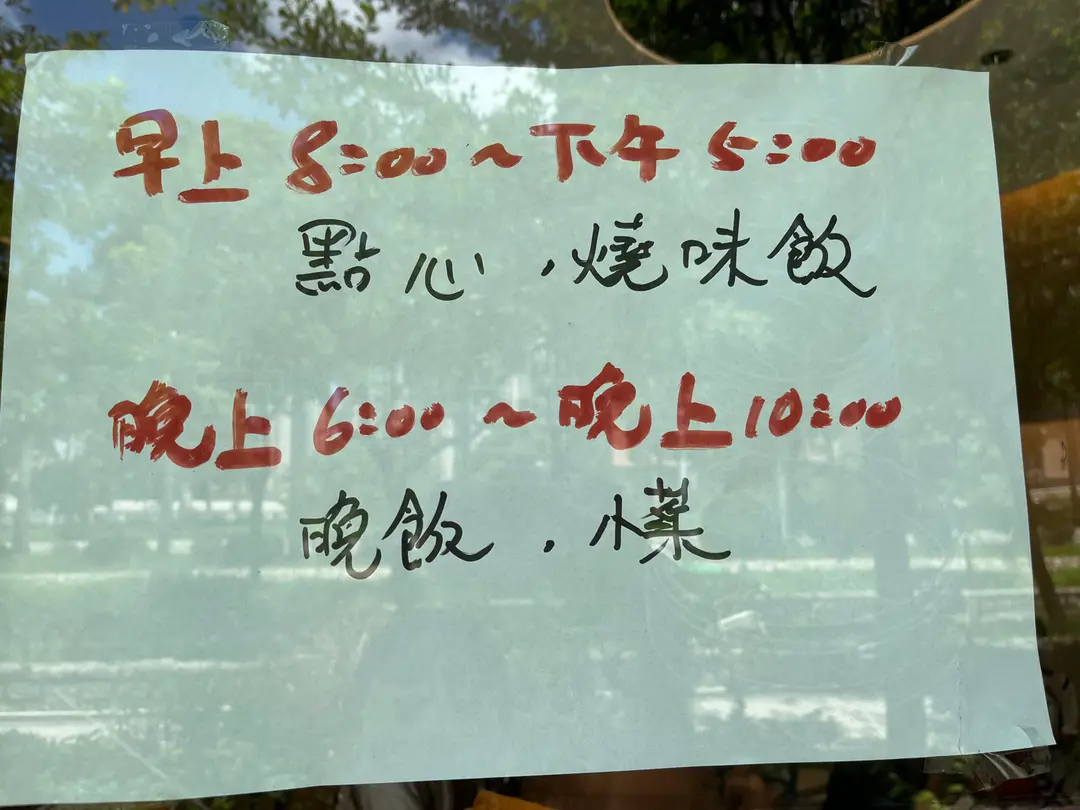 早上 8:00~下午 5:00
點心,燒味飯
晚上 6:00~晚上 10:00
晚飯.小菜